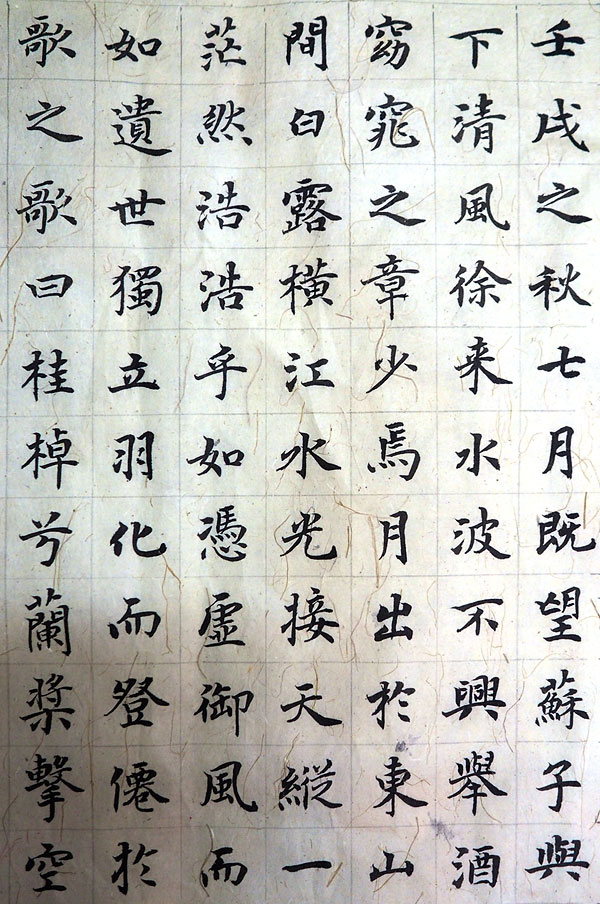 壬戌之秋七月既望蘇子與
下清風徐来水波不興舉酒
窈窕之章少焉月出於東山
間白露橫江水光接天縱一
茫然浩浩乎如馮虛御風而
如遺世獨立羽化而登僊於
歌之歌曰桂棹兮蘭槳擊空